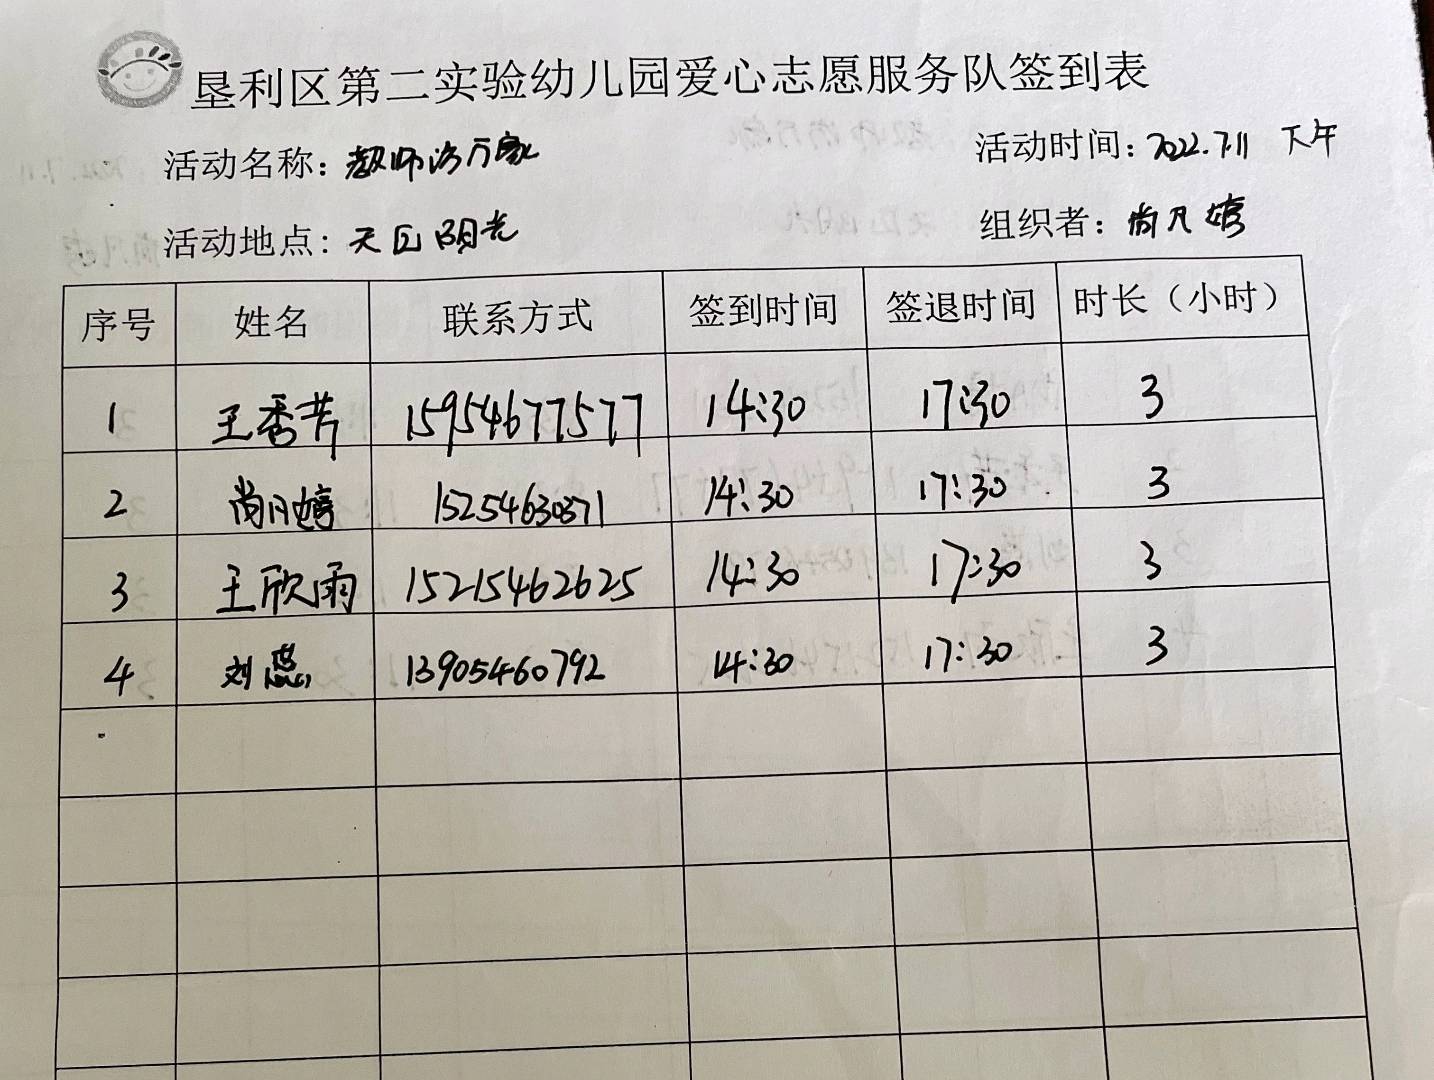 垦利区第二实验幼儿园爱心志愿服务队签到表
活动名称：教师访万家 活动时间：2022.7.11 下午
活动地点：天正阳光 组织者：尚凡婷
序号 姓名 联系方式 签到时间 签退时间 时长（小时）
1 王秀芳 15954677577 14:30 17:30 3
2 尚凡婷 15254630371 14:30 17:30 3
3 王欣雨 15215462625 14:30 17:30 3
4 刘 13905460792 14:30 17:30 3